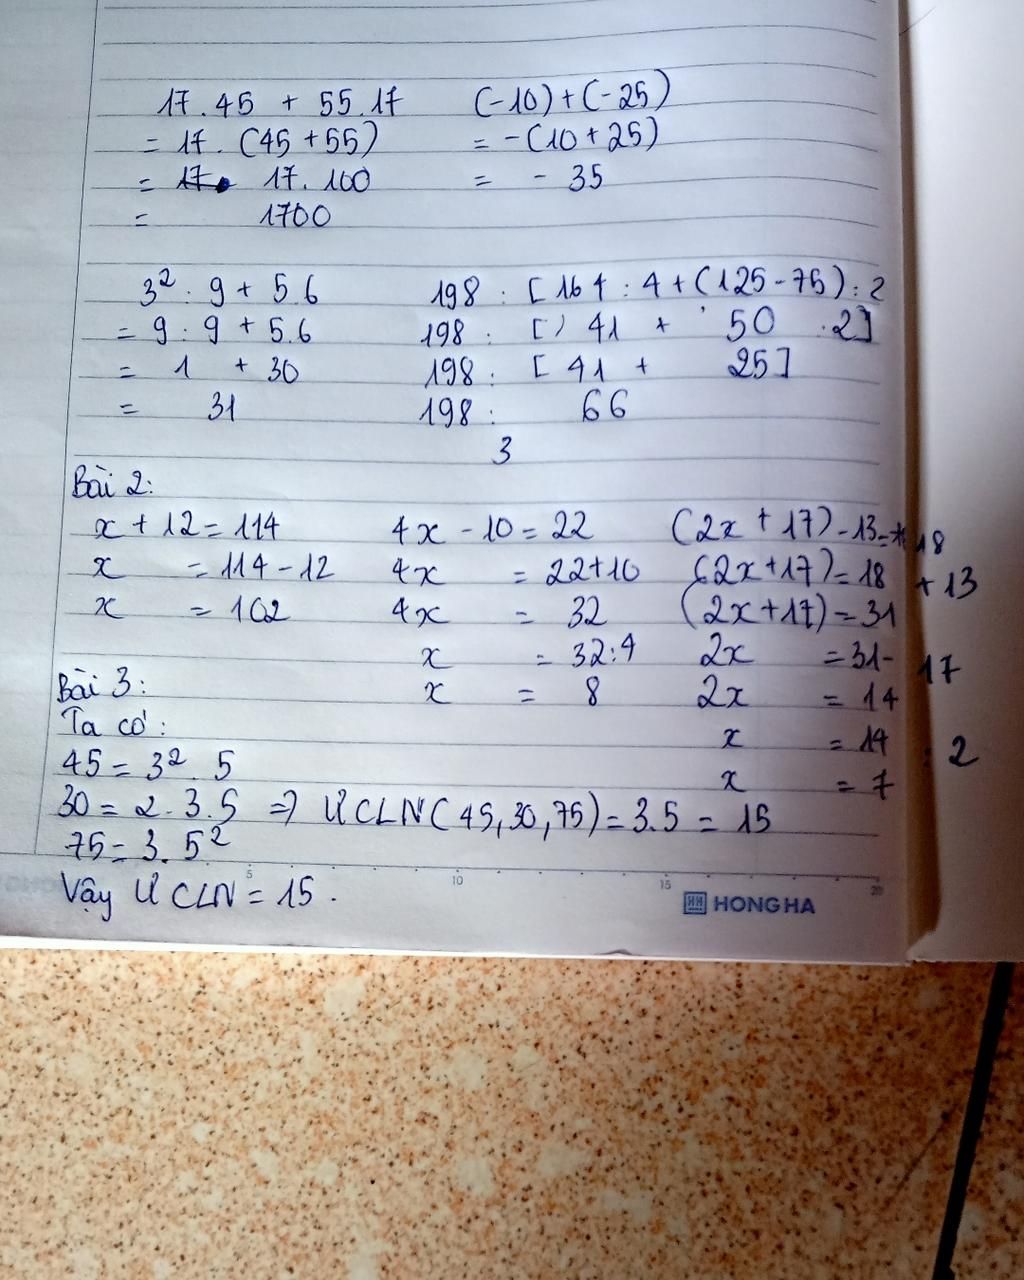 17.45 + 55.17
= 17. (45+55)
= 17. 17.100
= 1700
(-10)+(-25)
= -(10+25)
= - 35
3² : 9 + 5.6
= 9 : 9 + 5.6
= 1 + 30
= 31
198 : [164 : 4 + (125-75) : 2
198 : [) 41 + 50 :2]
198 : [ 41 + 25]
198 : 66
3
Bài 2:
x + 12 = 114
x = 114 - 12
x = 102
4x - 10 = 22
4x = 22+10
4x = 32
x = 32:4
x = 8
(2x + 17) - 13 = 18
(2x+17) = 18 + 13
(2x+17) = 31
2x = 31 - 17
2x = 14
x = 14 : 2
x = 7
Bài 3:
Ta có:
45 = 3². 5
30 = 2.3.5 => ƯCLN(45,30,75) = 3.5 = 15
75 = 3. 5²
Vậy ƯCLN = 15.
5 10 15 20
HH HONG HA